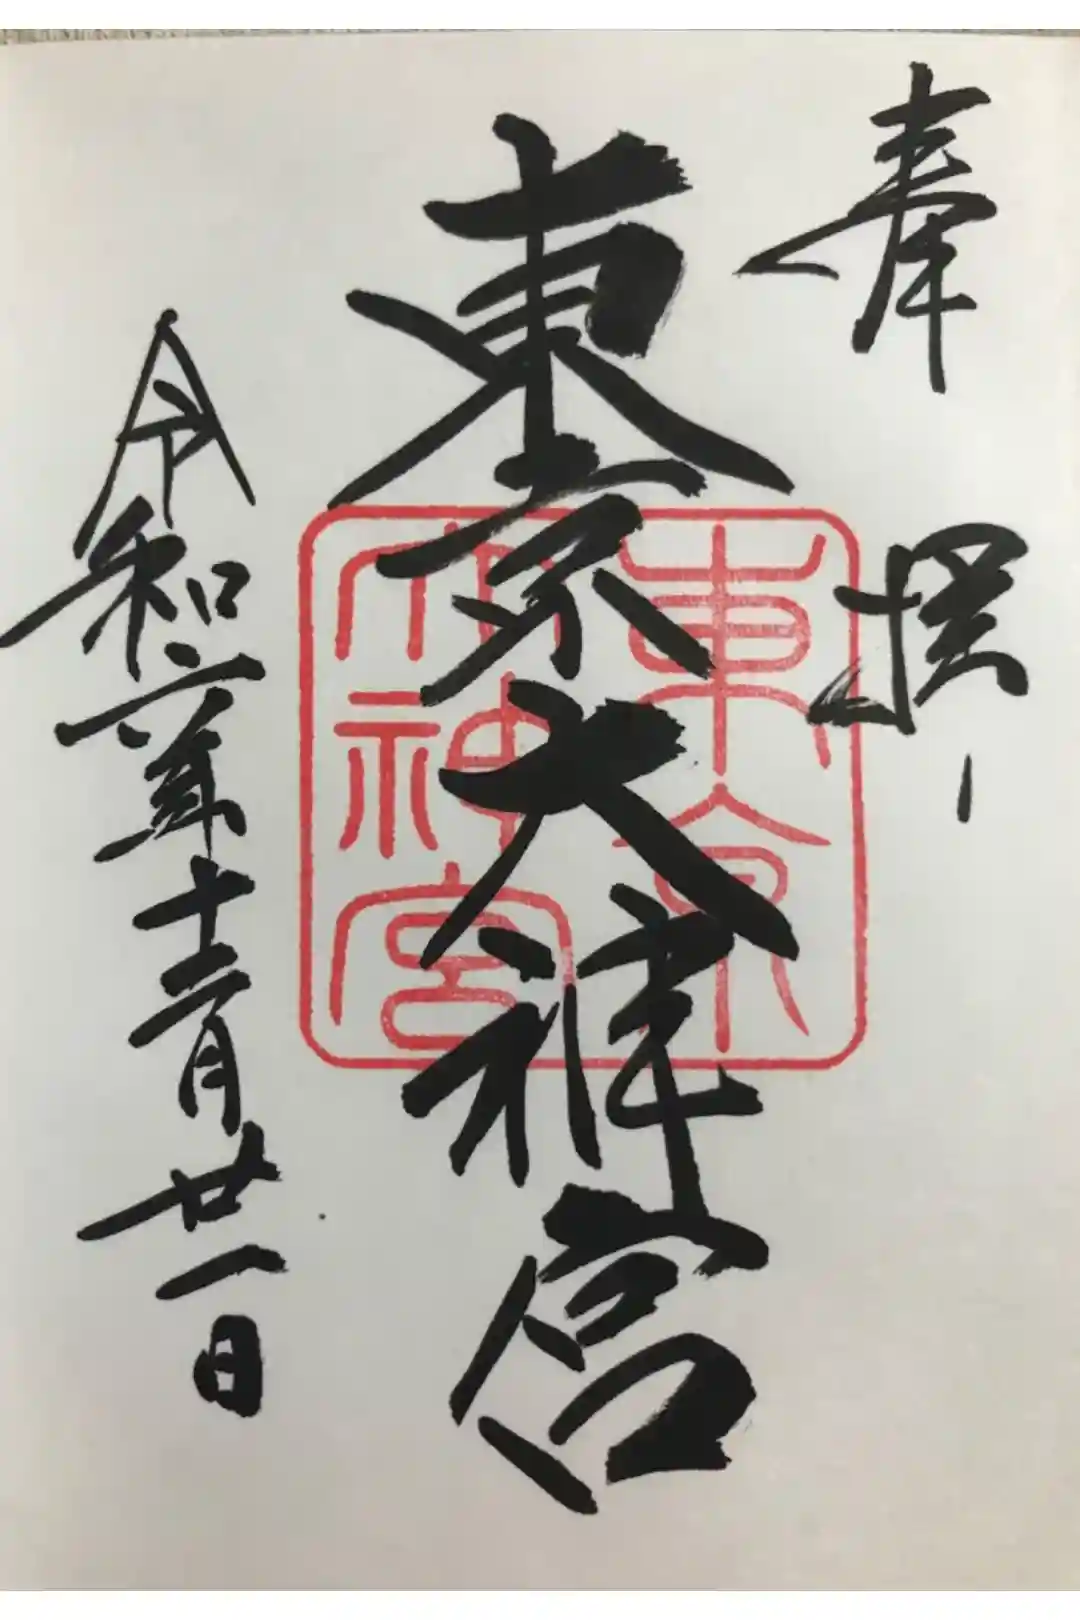 奉拝
東京大神宮
令和六年十二月廿一日
東京
大神宮